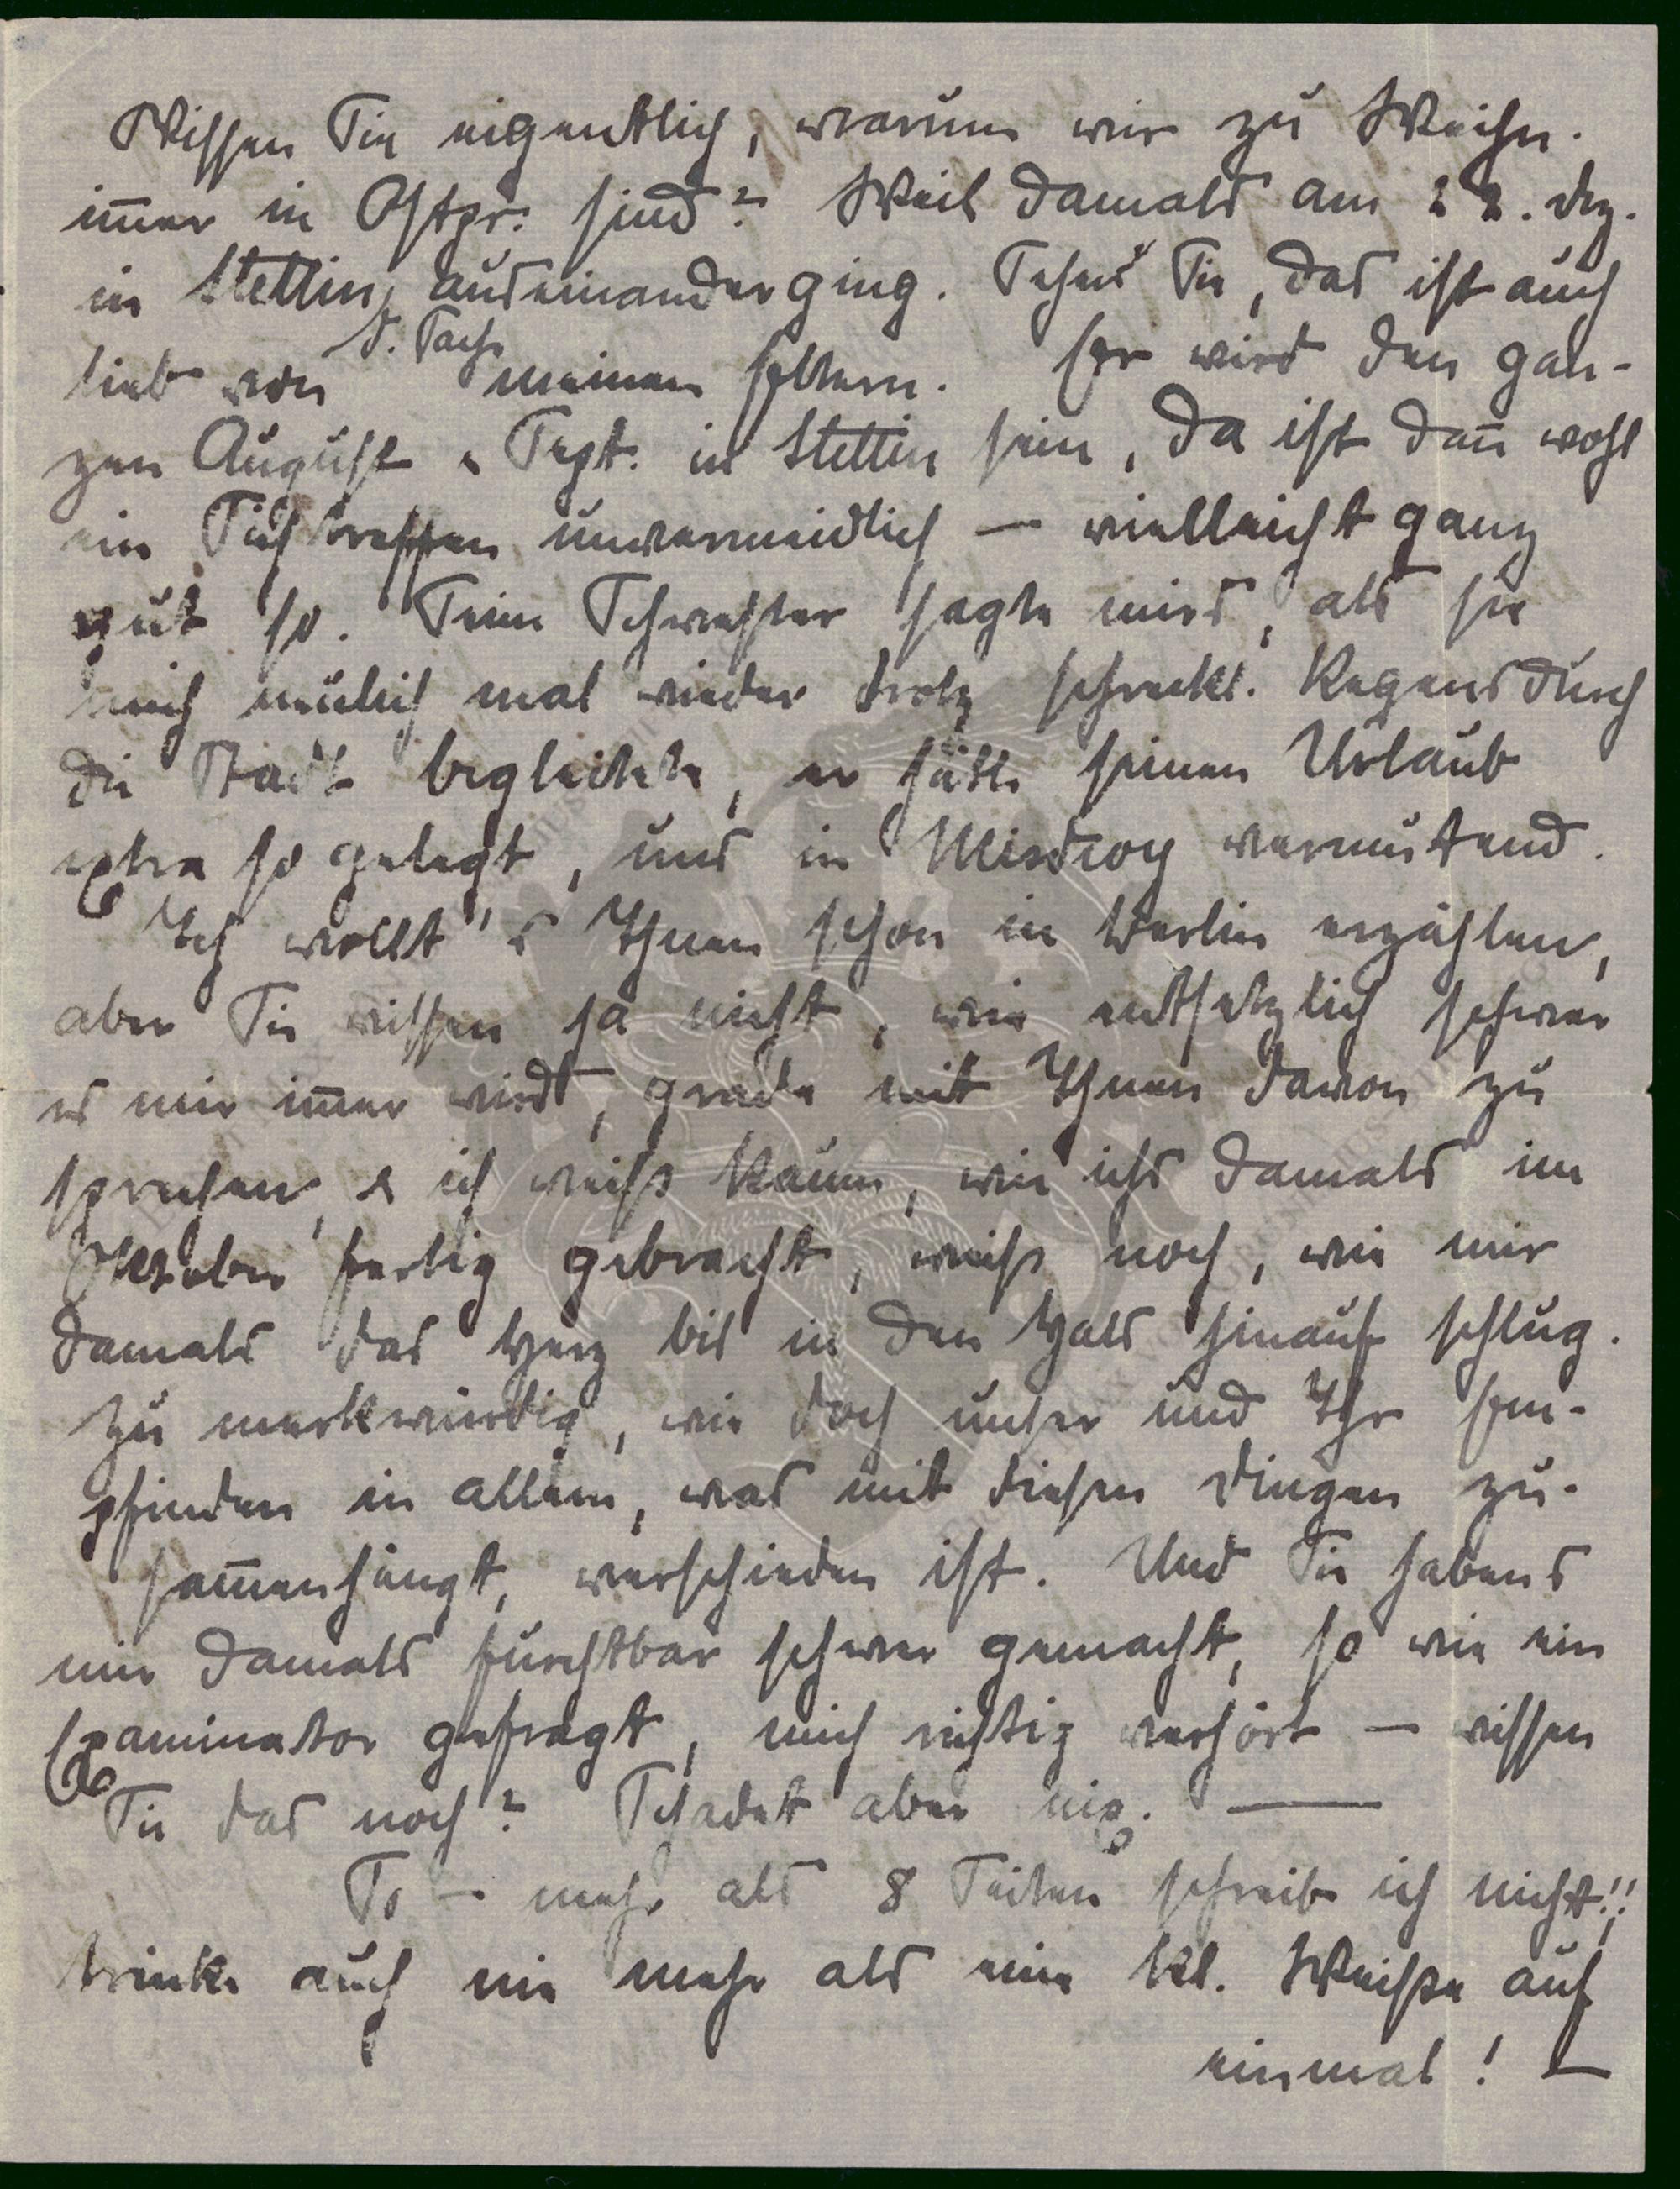 Wissen Sie eigentlich, warum wir zu Weihn.
im̅er in Ostpr. sind? Weil damals am 22. Dez.
in Stettin d. Sache auseinanderging. Sehen Sie, das ist auch
lieb von meinen Eltern. Er wird den gan-
zen August u. Sept. in Stettin sein, da ist dan̅ wohl
ein Sichtreffen unvermeidlich – vielleicht ganz
gut so. Seine Schwester sagte mirs, als sie
mich neulich mal wieder trotz schreckl. Regens durch
die Stadt begleitete, er hätte seinen Urlaub
extra so gelegt, uns in Misdroy vermutend.
Ich wollt's Ihnen schon in Berlin erzählen,
aber Sie wissen ja nicht, wie entsetzlich schwer
es mir im̅er wird, grade mit Ihnen davon zu
sprechen, u. ich weiß kaum, wie ichs damals im
Oktober fertig gebracht, weiß noch, wie mir
damals das Herz bis in den Hals hinauf schlug.
Zu merkwürdig, wie doch unser und Ihr Em-
pfinden in allem, was mit diesen Dingen zu-
sam̅enhängt, verschieden ist. Und Sie habens
mir damals furchtbar schwer gemacht, so wie ein
Examinator gefragt, mich richtig verhört – wissen
Sie das noch? Schadet aber nix. —
So – mehr als 8 Seiten schreib ich nicht!!
trinke auch nie mehr als eine kl. Weiße auf
einmal! –